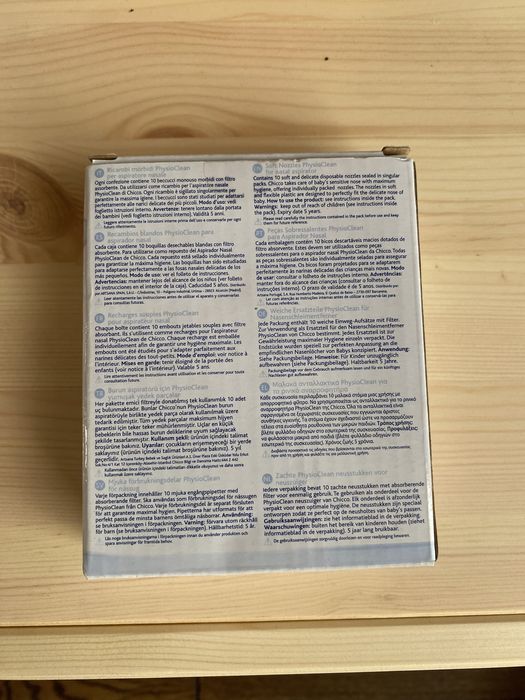 IT Ricambi morbidi PhysioClean
per aspiratore nasale
Ogni confezione contiene 10 beccucci monouso morbidi con filtro
assorbente. Da utilizzarsi come ricambi per l'aspiratore nasale
PhysioClean di Chicco. Ogni ricambio è sigillato singolarmente per
garantire la massima igiene. I beccucci sono stati studiati per adattarsi
perfettamente alle narici delicate dei più piccoli. Modo d'uso: vedi
foglietto istruzioni interno. Avvertenze: tenere lontano dalla portata
dei bambini (vedi foglietto istruzioni interno). Validità 5 anni.
Leggere attentamente le istruzioni interne prima dell'uso e conservarle per
ogni futuro riferimento.
ES Recambios blandos PhysioClean para
aspirador nasal
Cada caja contiene 10 boquillas desechables blandas con filtro
absorbente. Para utilizarse como repuesto del Aspirador Nasal
PhysioClean di Chicco. Cada repuesto está sellado individualmente
para garantizar la máxima higiene. Las boquillas han sido estudiadas
para adaptarse perfectamente a las fosas nasales delicadas de los
más pequeños. Modo de uso: ver el folleto de instrucciones.
Advertencias: mantener lejos del alcance de los niños (ver folleto
de instrucciones en el interior de la caja). Caducidad 5 años.
Leer atentamente las instrucciones antes de utilizar el aparato y conservarlas
para consultas futuras.
FR Recharges souples PhysioClean
pour aspirateur nasal
Chaque boîte contient 10 embouts jetables souples avec filtre
absorbant. Ils s'utilisent comme recharges pour l'aspirateur
nasal PhysioClean de Chicco. Chaque recharge est emballée
individuellement afin de garantir une hygiène maximale. Les
embouts ont été étudiés pour s'adapter parfaitement aux
narines délicates des tout-petits. Mode d'emploi: voir notice à
l'intérieur Mises en garde: tenir éloigné de la portée des
enfants (voir notice à l'intérieur). Valable 5 ans.
Lire attentivement les instructions avant utilisation et les conserver pour toute
consultation future.
TR Burun aspiratörü için PhysioClean
yumuşak yedek parçalar
Her pakette emici filtreyle donatılmış tek kullanımlık 10 adet
uç bulunmaktadır. Bunlar Chicco'nun PhysioClean burun
aspiratörüyle birlikte yedek parça olarak kullanılmak üzere
tedarik edilmiştir. Tüm yedek parçalar maksimum hijyen
garantisi için teker teker mühürlenmiştir. Uçlar en küçük
bebeklerin bile hassas burun deliklerine uyum sağlayacak
şekilde tasarlanmıştır. Kullanım şekli: ürünün içindeki talimat
broşürüne bakınız. Uyarılar: çocukların erişemeyeceği bir yerde
saklayınız (ürünün içindeki talimat broşürüne bakınız). 5 yıl
geçerlidir.
Kullanmadan önce ürünün içindeki talimatları dikkatle okuyunuz ve daha sonra
kullanmak üzere saklayınız.
SV Mjuka förbrukningsdelar PhysioClean
för nässug
Varje förpackning innehåller 10 mjuka engångspipetter med
absorberande filter. Ska användas som förbrukningsdel för nässugen
PhysioClean från Chicco. Varje förbrukningsdel är separat försluten
för att garantera maximal hygien. Pipetterna har utformats för att
perfekt passa de minsta barnens ömtåliga näsborrar. Användning:
se bruksanvisningen i förpackningen. Varning: förvara utom räckhåll
för barn (se bruksanvisningen i förpackningen). Hållbarhetstid 5 år.
Läs noga bruksanvisningen i förpackningen innan du använder produkten och
spara anvisningen för framtida behov.
EN Soft Nozzles PhysioClean
for nasal aspirator
Contains 10 soft and delicate disposable nozzles sealed in singular
packs. Chicco takes care of baby's sensitive nose with maximum
hygiene, offering individually packed nozzles. The nozzles in soft
and flexible plastic are designed to perfectly fit the delicate nose of
baby. How to use the product: see instructions inside the pack.
Warnings: keep out of reach of children (see instructions inside
the pack). Expiry date 5 years.
Please read carefully the instructions contained in the pack before use and keep
them for future reference.
PT Peças Sobressalentes PhysioClean
para Aspirador Nasal
Cada embalagem contém 10 bicos descartáveis macios dotados de
filtro absorvente. Estes devem ser utilizados como peças
sobressalentes para o aspirador nasal PhysioClean da Chicco. Todas
as peças sobressalentes são individualmente seladas para assegurar
a máxima higiene. Os bicos foram projetados para se adaptarem
perfeitamente às narinas delicadas das crianças mais novas. Modo
de usar: consultar o folheto de instruções interno. Advertências:
manter fora do alcance das crianças (consultar o folheto de
instruções interno). O prazo de validade é de 5 anos.
Ler com atenção as instruções internas antes de utilizar e conservá-las para
futuras referências.
DE Weiche Ersatzteile PhysioClean für
Nasenschleimentferner
Jede Packung enthält 10 weiche Einweg-Aufsätze mit Filter.
Zur Verwendung als Ersatzteil für den Nasenschleimentferner
PhysioClean von Chicco bestimmt. Jedes Ersatzteil ist zur
Gewährleistung maximaler Hygiene einzeln verpackt. Die
Endstücke wurden speziell zur perfekten Anpassung an die
empfindlichen Nasenlöcher von Babys konzipiert. Anwendung:
Siehe Packungsbeilage. Hinweise: Für Kinder unzugänglich
aufbewahren (siehe Packungsbeilage). Haltbarkeit: 5 Jahre.
Packungsbeilage vor dem Gebrauch aufmerksam lesen und für ein künftiges
Nachlesen gut aufbewahren.
EL Μαλακά ανταλλακτικά PhysioClean για
το ρινικό αναρροφητήρα
NL Zachte PhysioClean neusstukken voor
neuszuiger
Iedere verpakking bevat 10 zachte neusstukken met absorberende
filter voor eenmalig gebruik. Te gebruiken als onderdeel voor de
PhysioClean neuszuiger van Chicco. Elk onderdeel is afzonderlijk
verpakt voor een optimale hygiëne. De neusstukken zijn speciaal
ontworpen zodat ze perfect op de neusholtes van baby's passen.
Gebruiksaanwijzingen: zie het informatieblad in de verpakking.
Waarschuwingen: buiten het bereik van kinderen houden (zie het
informatieblad in de verpakking). 5 jaar lang bruikbaar.
De gebruiksaanwijzingen zorgvuldig doorlezen en voor raadpleging bewaren.